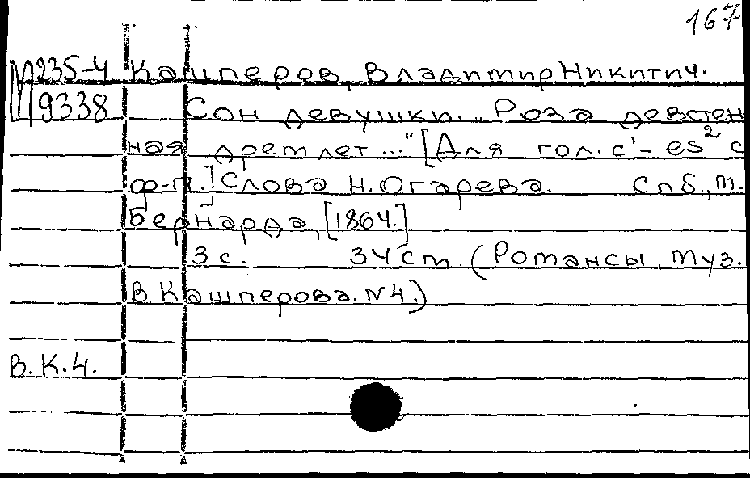 167
М235-4 Кашперов, Владимир Никитич.
М9338 Сон девушки. „Роза девствен
ная дремлет..." [Для гол. c¹-es² с
ф-п.] Слова Н. Огарева. Спб., М.
Бернарда, [1864.]
3 с. 34 см. (Романсы муз.
В. Кашперова. №4.)
В.К.4.